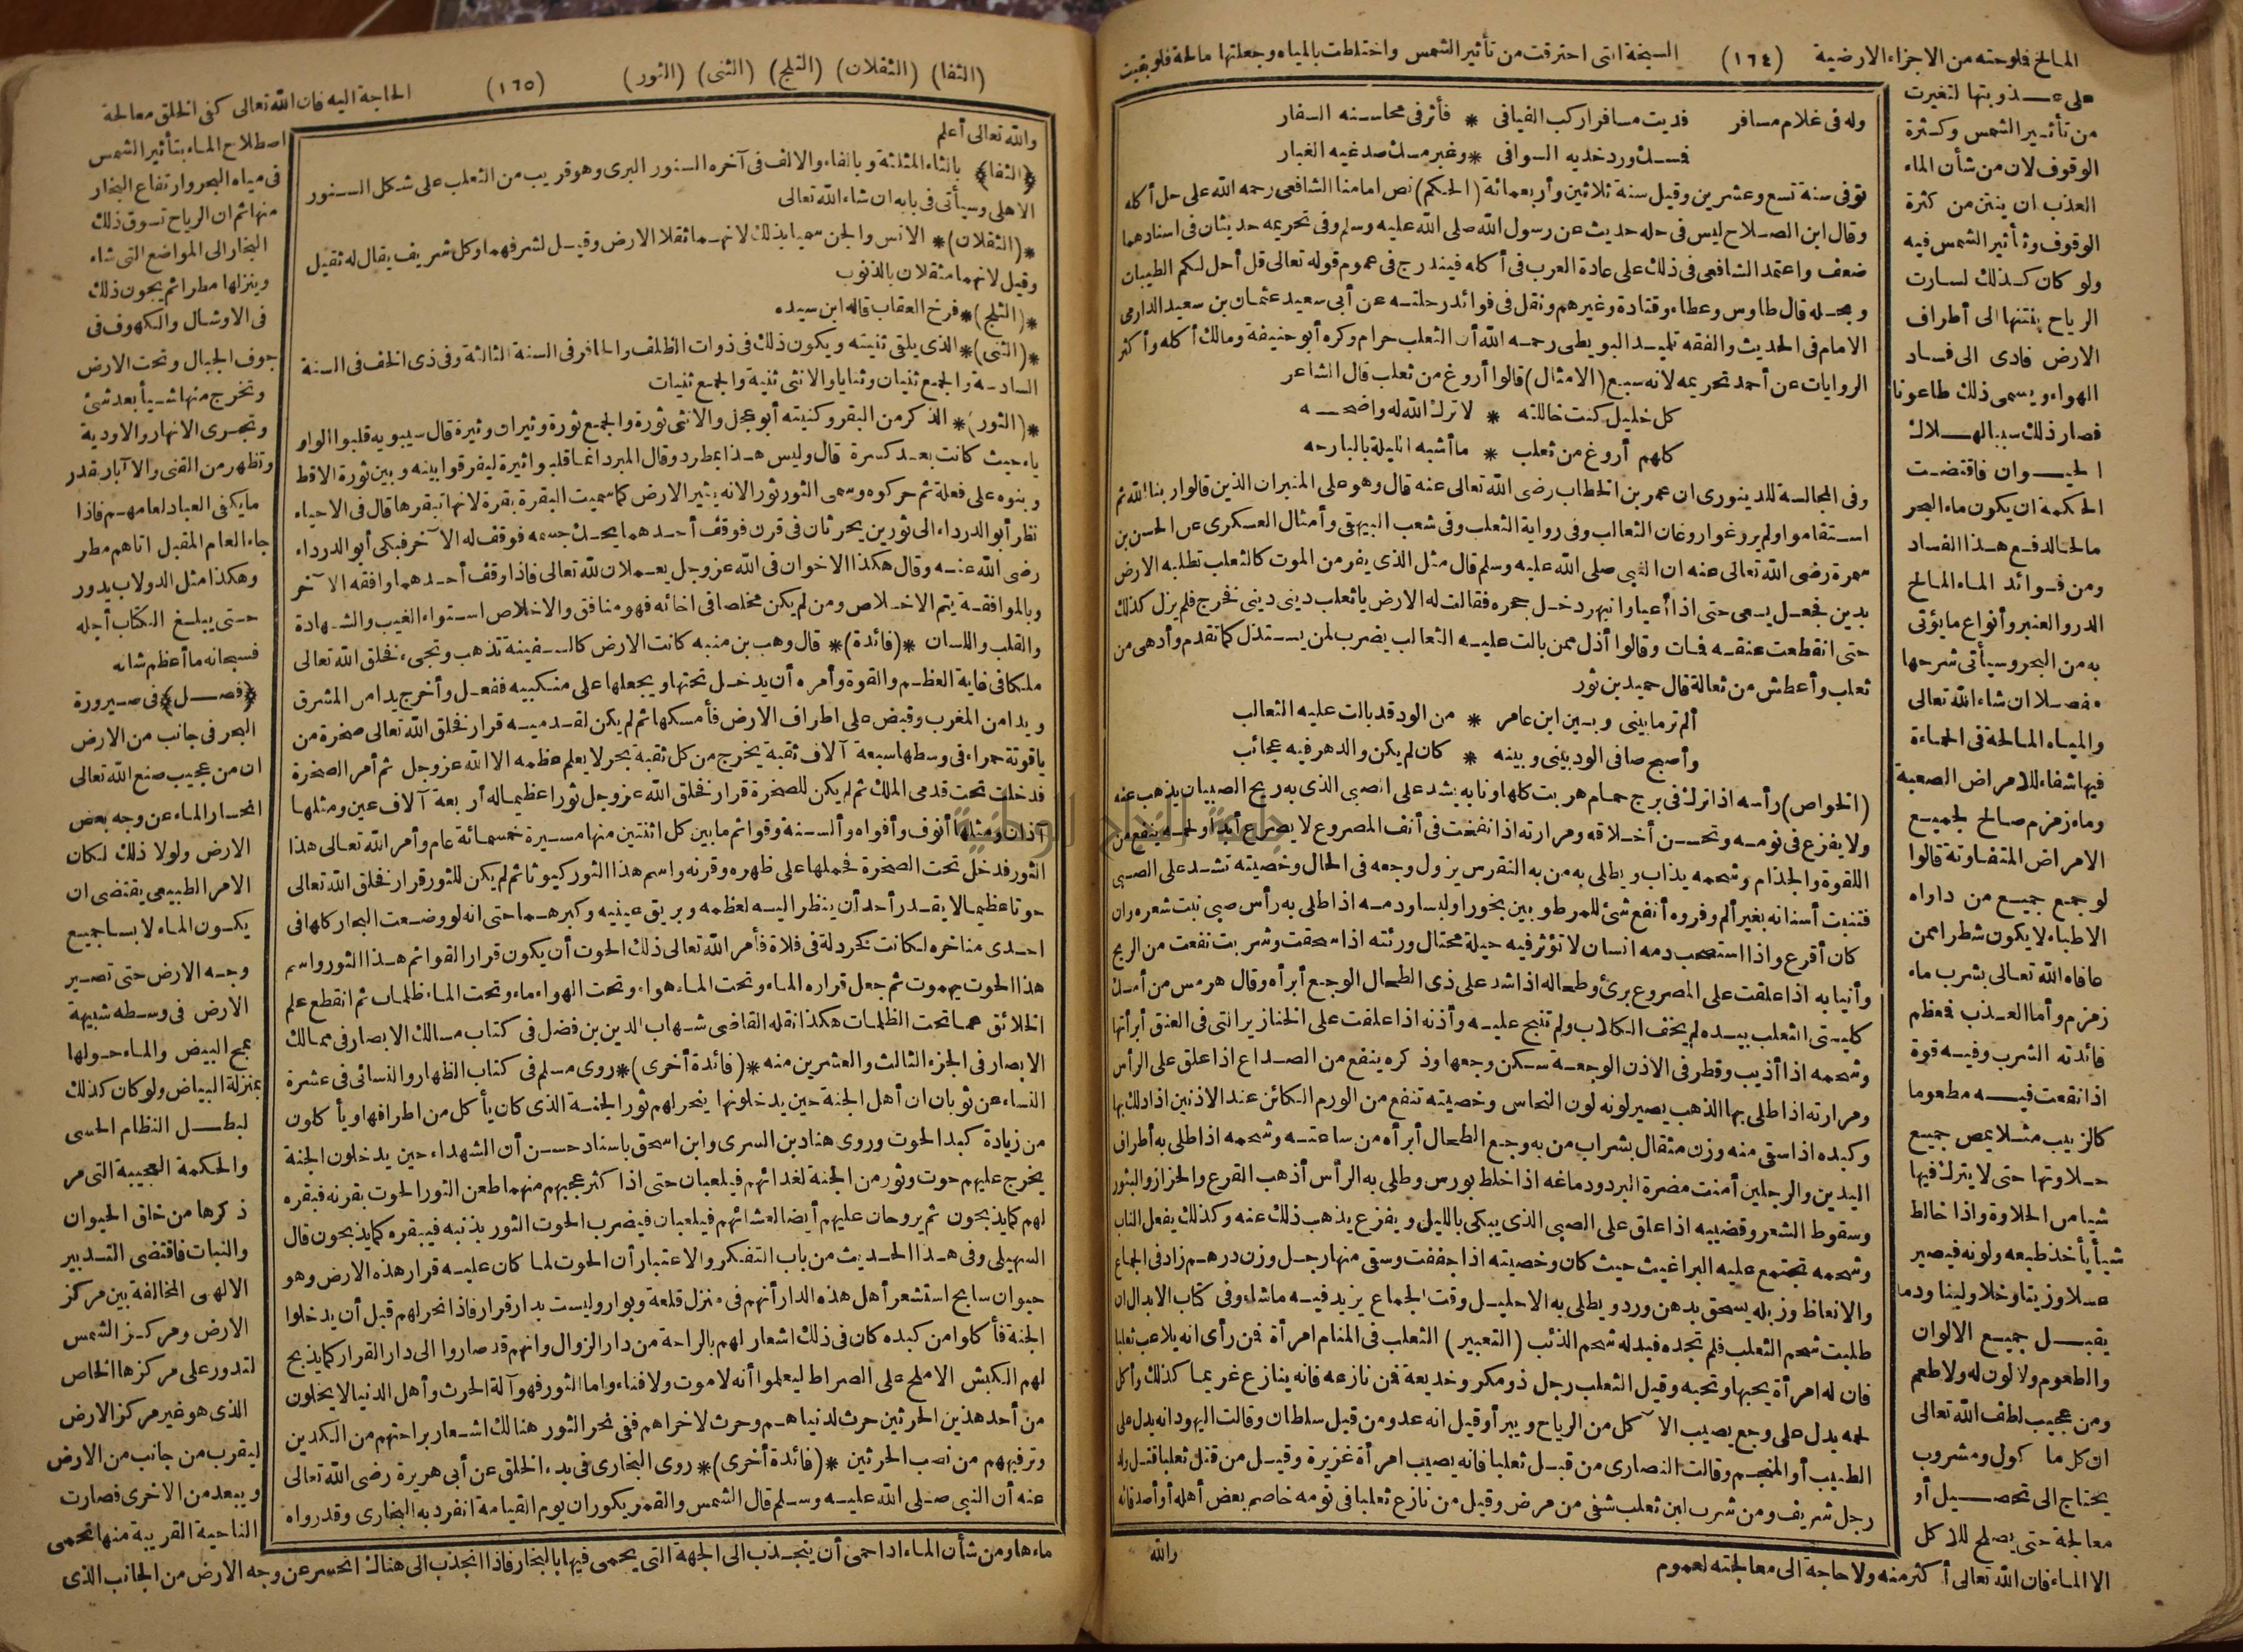 المالح فلوحته من الاجزاء الارضية (١٦٤) السبخة التى احترقت من تأثير الشمس واختلطت بالمياه وجعلتها مالحة فلو بقيت
على عذوبتها لتغيرت
من تأثير الشمس وكثرة
الوقوف لان من شأن الماء
العذب ان ينتن من كثرة
الوقوف وتأثير الشمس فيه
ولو كان كذلك لسارت
الرياح بنتنها الى أطراف
الارض فادى الى فساد
الهواء ويسمى ذلك طاعونا
فصار ذلك سببا لهلاك
الحيوان فاقتضت
الحكمة ان يكون ماء البحر
مالحا لدفع هذا الفساد
ومن فوائد الماء المالح
الدر والعنبر وأنواع ما يؤتى
به من البحر وسيأتى شرحها
مفصلا ان شاء الله تعالى
والمياه المالحة فى الحماءة
فيها شفاء للامراض الصعبة
وماء زمزم صالح لجميع
الامراض المتفاوتة قالوا
لو جمع جميع من داواه
الاطباء لا يكون شطرا ممن
عافاه الله تعالى بشرب ماء
زمزم وأما العذب فعظم
فائدته الشرب وفيه قوة
اذا نقعت فيه مطعوما
كالزبيب مثلا يمص جميع
حلاوتها حتى لا يترك فيها
شيا من الحلاوة واذا خالط
شيأ يأخذ طبعه ولونه فيصير
عسلا وزيتا وخلا ولبنا ودما
يقبل جميع الالوان
والطعوم ولا لون له ولا طعم
ومن عجيب لطف الله تعالى
ان كل ما كول ومشروب
يحتاج الى تحصيل أو
معالجة حتى يصلح للاكل
الا الماء فان الله تعالى أكثر منه ولا حاجة الى معالجته لعموم
وله فى غلام مسافر فديت مسافرا ركب الفيافى * فأثر فى محاسنه السفار
فسك ورد خديه السوافى * وغبر مسك صدغيه الغبار
توفى سنة تسع وعشرين وقيل سنة ثلاثين وأربعمائة (الحكم) نص امامنا الشافعى رحمه الله على حل أكله
وقال ابن الصلاح ليس فى حله حديث عن رسول الله صلى الله عليه وسلم وفى تحريمه حديثان فى اسنادهما
ضعف واعتمد الشافعى فى ذلك على عادة العرب فى أكله فيندرج فى عموم قوله تعالى قل أحل لكم الطيبات
وبحله قال طاوس وعطاء وقتادة وغيرهم ونقل فى فوائد رحلته عن أبى سعيد عثمان بن سعيد الدارمى
الامام فى الحديث والفقه تلميذ البويطى رحمه الله أن الثعلب حرام وكره أبو حنيفة ومالك أكله وأكثر
الروايات عن أحمد تحريمه لانه سبع (الامثال) قالوا أروغ من ثعلب قال الشاعر
كل خليل كنت خاللته * لا ترك الله له واضحه
كلهم أروغ من ثعلب * ما أشبه الليلة بالبارحه
وفى المجالسة للدينورى ان عمر بن الخطاب رضى الله تعالى عنه قال وهو على المنبر ان الذين قالوا ربنا الله ثم
استقاموا ولم يروغوا روغان الثعالب وفى رواية الثعلب وفى شعب البيهقى وأمثال العسكرى عن الحسن بن
سمرة رضى الله تعالى عنه ان النبى صلى الله عليه وسلم قال مثل الذى يفر من الموت كالثعلب تطلبه الارض
بدين فجعل يسعى حتى اذا أعيا وانبهر دخل جحره فقالت له الارض يا ثعلب دينى دينى فخرج فلم يزل كذلك
حتى انقطعت عنقه فمات وقالوا أذل ممن بالت عليه الثعالب يضرب لمن يستذل كما تقدم وأدهى من
ثعلب وأعطش من ثعالة قال حميد بن ثور
ألم تر ما بينى وبين ابن عامر * من الود قد بالت عليه الثعالب
وأصبح صافى الود بينى وبينه * كان لم يكن والدهر فيه عجائب
(الخواص) رأسه اذا ترك فى برج حمام هربت كلها ونابه يشد على الصبى الذى به ريح الصبيان يذهب عنه
ولا يفزع فى نومه وتحسن أخلاقه ومرارته اذا نفخت فى أنف المصروع لا يصرع أبدا ولحمه ينفع من
اللقوة والجذام وشحمه يذاب ويطلى به من به النقرس يزول وجعه فى الحال وخصيته تشد على الصبى
فتنبت أسنانه بغير ألم وفروه أنفع شئ للمرطوبين بخورا ولبسا ودمه اذا طلى به رأس صبى نبت شعره وان
كان أقرع واذا استصحب دمه انسان لا تؤثر فيه حيلة محتال ورئته اذا سحقت وشربت نفعت من الريح
وأنيابه اذا علقت على المصروع برئ وطحاله اذا شد على ذى الطحال الوجع أبرأه وقال هرمس من أمسك
كليتى الثعلب بيده لم يخف الكلاب ولم تنبح عليه وأذنه اذا علقت على الخنازير التى فى العنق أبرأتها
وشحمه اذا أذيب وقطر فى الاذن الوجعة سكن وجعها وذكره ينفع من الصداع اذا علق على الرأس
ومرارته اذا طلى بها الذهب يصير لونه لون النحاس وخصيته تنفع من الورم الكائن عند الاذنين اذا دلك بها
وكبده اذا سقى منه وزن مثقال بشراب من به وجع الطحال أبرأه من ساعته وشحمه اذا طلى به أطراف
اليدين والرجلين أمنت مضرة البرد ودماغه اذا خلط بورس وطلى به الرأس أذهب القرع والحزاز والبثور
وسقوط الشعر وقضيبه اذا علق على الصبى الذى يبكى بالليل ويفزع يذهب ذلك عنه وكذلك يفعل الناب
وشحمه تجتمع عليه البراغيث حيث كان وخصيته اذا جففت وسقى منها رجل وزن درهم زاد فى الجماع
والانعاظ وزبله يسحق بدهن ورد ويطلى به الاحليل وقت الجماع يزيد فيه ما شاء وفى كتاب الابدال ان
طلبت شحم الثعلب فلم تجده فبدله شحم الذئب (التعبير) الثعلب فى المنام امرأة فمن رأى انه يلاعب ثعلبا
فان له امرأة يحبها وتحبه وقيل الثعلب رجل ذو مكر وخديعة فمن نازعه فانه ينازع غريما كذلك وأكل
لحمه يدل على وجع يصيب الآكل من الرياح ويبرأ وقيل انه عدو من قبل سلطان وقالت اليهود انه يدل على
الطبيب أو المنجم وقالت النصارى من قبل ثعلبا فانه يصيب امرأة غزيرة وقيل من قتل ثعلبا قتل ولد
رجل شريف ومن شرب لبن ثعلب شفى من مرض وقيل من نازع ثعلبا فى نومه خاصم بعض أهله أو أصدقائه
والله
(الثفا) (الثقلان) (الثلج) (الثنى) (الثور) (١٦٥) الحاجة اليه فان الله تعالى كفى الخلق معالجة
والله تعالى أعلم
﴿الثفا﴾ بالثاء المثلثة وبالفاء والالف فى آخره السنور البرى وهو قريب من الثعلب على شكل السنور
الاهلى وسيأتى فى بابه ان شاء الله تعالى
*(الثقلان)* الانس والجن سميا بذلك لانهما ثقلا الارض وقيل لشرفهما وكل شريف يقال له ثقيل
وقيل لانهما مثقلان بالذنوب
*(الثلج)* فرخ العقاب قاله ابن سيده
*(الثنى)* الذى يلقى ثنيته ويكون ذلك فى ذوات الظلف والحافر فى السنة الثالثة وفى ذى الخف فى السنة
السادسة والجمع ثنيان وثنايا والانثى ثنية والجمع ثنيات
*(الثور)* الذكر من البقر وكنيته أبو عجل والانثى ثورة والجمع ثورة وثيران وثيرة قال سيبويه قلبوا الواو
ياء حيث كانت بعد كسرة قال وليس هذا بمطرد وقال المبرد انما قلبوا ثيرة ليفرقوا بينه وبين ثورة الاقط
وبنوه على فعلة ثم حركوه وسمى الثور ثورا لانه يثير الارض كما سميت البقرة بقرة لانها تبقرها قال فى الاحياء
نظر أبو الدرداء الى ثورين يحرثان فى قرن فوقف أحدهما يحك جسمه فوقف له الآخر فبكى أبو الدرداء
رضى الله عنه وقال هكذا الاخوان فى الله عز وجل يعملان لله تعالى فاذا وقف أحدهما وافقه الآخر
وبالموافقة يتم الاخلاص ومن لم يكن مخلصا فى اخائه فهو منافق والاخلاص استواء الغيب والشهادة
والقلب واللسان *(فائدة)* قال وهب بن منبه كانت الارض كالسفينة تذهب وتجىء فخلق الله تعالى
ملكا فى غاية العظم والقوة وأمره أن يدخل تحتها ويجعلها على منكبيه ففعل وأخرج يدا من المشرق
ويدا من المغرب وقبض على اطراف الارض فأمسكها ثم لم يكن لقدميه قرار فخلق الله تعالى صخرة من
ياقوتة حمراء فى وسطها سبعة آلاف ثقبة يخرج من كل ثقبة بحر لا يعلم عظمه الا الله عز وجل ثم أمر الصخرة
فدخلت تحت قدمى الملك ثم لم يكن للصخرة قرار فخلق الله عز وجل ثورا عظيما له أربعة آلاف عين ومثلها
آذان ومثلها أنوف وأفواه وألسنة وقوائم ما بين كل اثنتين منها مسيرة خمسمائة عام وأمر الله تعالى هذا
الثور فدخل تحت الصخرة فحملها على ظهره وقرنه واسم هذا الثور كيوثا ثم لم يكن للثور قرار فخلق الله تعالى
حوتا عظيما لا يقدر أحد أن ينظر اليه لعظمه وبريق عينيه وكبرهما حتى انه لو وضعت البحار كلها فى
احدى مناخره لكانت كخردلة فى فلاة فأمر الله تعالى ذلك الحوت أن يكون قرارا لقوائم هذا الثور واسم
هذا الحوت بهموت ثم جعل قراره الماء وتحت الماء هواء وتحت الهواء ماء وتحت الماء ظلمات ثم انقطع علم
الخلائق عما تحت الظلمات هكذا نقله القاضى شهاب الدين بن فضل فى كتاب مسالك الابصار فى ممالك
الابصار فى الجزء الثالث والعشرين منه *(فائدة أخرى)* روى مسلم فى كتاب الظهار والنسائى فى عشرة
النساء عن ثوبان ان أهل الجنة حين يدخلونها ينحر لهم ثور الجنة الذى كان يأكل من اطرافها ويأكلون
من زيادة كبد الحوت وروى هناد بن السرى وابن اسحق باسناد حسن أن الشهداء حين يدخلون الجنة
يخرج عليهم حوت وثور من الجنة لغدائهم فيلعبان حتى اذا كثر عجبهم منهما طعن الثور الحوت بقرنه فبقره
لهم كما يذبحون ثم يروحان عليهم أيضا لعشائهم فيلعبان فيضرب الحوت الثور بذنبه فيبقره كما يذبحون قال
السهيلى وفى هذا الحديث من باب التفكر والاعتبار أن الحوت لما كان عليه قرار هذه الارض وهو
حيوان سابح استشعر أهل هذه الدار أنهم فى منزل قلعة وبوار وليست بدار قرار فاذا نحر لهم قبل أن يدخلوا
الجنة فأكلوا من كبده كان فى ذلك اشعار لهم بالراحة من دار الزوال وانهم قد صاروا الى دار القرار كما يذبح
لهم الكبش الاملح على الصراط ليعلموا أنه لا موت ولا فناء واما الثور فهو آلة الحرث وأهل الدنيا لا يخلون
من أحد هذين الحرثين حرث لدنياهم وحرث لاخراهم ففى نحر الثور هنالك اشعار براحتهم من الكدين
وترفيههم من نصب الحرثين *(فائدة أخرى)* روى البخارى فى بدء الخلق عن أبى هريرة رضى الله تعالى
عنه أن النبى صلى الله عليه وسلم قال الشمس والقمر يكوران يوم القيامة انفرد به البخارى وقد رواه
اصطلاح الماء بتأثير الشمس
فى مياه البحر وارتفاع البخار
منها ثم ان الرياح تسوق ذلك
البخار الى المواضع التى شاء
وينزلها مطرا ثم يجون ذلك
فى الاوشال والكهوف فى
جوف الجبال وتحت الارض
وتخرج منها شيأ بعد شئ
وتجرى الانهار والاودية
وتظهر من القنى والآبار بقدر
ما يكفى العباد لعامهم فاذا
جاء العام المقبل اتاهم مطر
وهكذا مثل الدولاب يدور
حتى يبلغ الكتاب أجله
فسبحانه ما أعظم شانه
﴿فصل﴾ فى صيرورة
البحر فى جانب من الارض
ان من عجيب صنع الله تعالى
انحسار الماء عن وجه بعض
الارض ولولا ذلك لكان
الامر الطبيعى يقتضى ان
يكون الماء لابسا جميع
وجه الارض حتى تصير
الارض فى وسطه شبيهة
بمح البيض والماء حولها
بمنزلة البياض ولو كان كذلك
لبطل النظام الحسى
والحكمة العجيبة التى مر
ذكرها من خلق الحيوان
والنبات فاقتضى التدبير
الالهى المخالفة بين مركز
الارض ومركز الشمس
لتدور على مركزها الخاص
الذى هو غير مركز الارض
ليقرب من جانب من الارض
ويبعد من الاخرى فصارت
الناحية القريبة منها تحمى
ماءها ومن شأن الماء اذا حمى أن ينجذب الى الجهة التى يحمى فيها بالبخار فاذا انجذب الى هناك انحسر عن وجه الارض من الجانب الذى